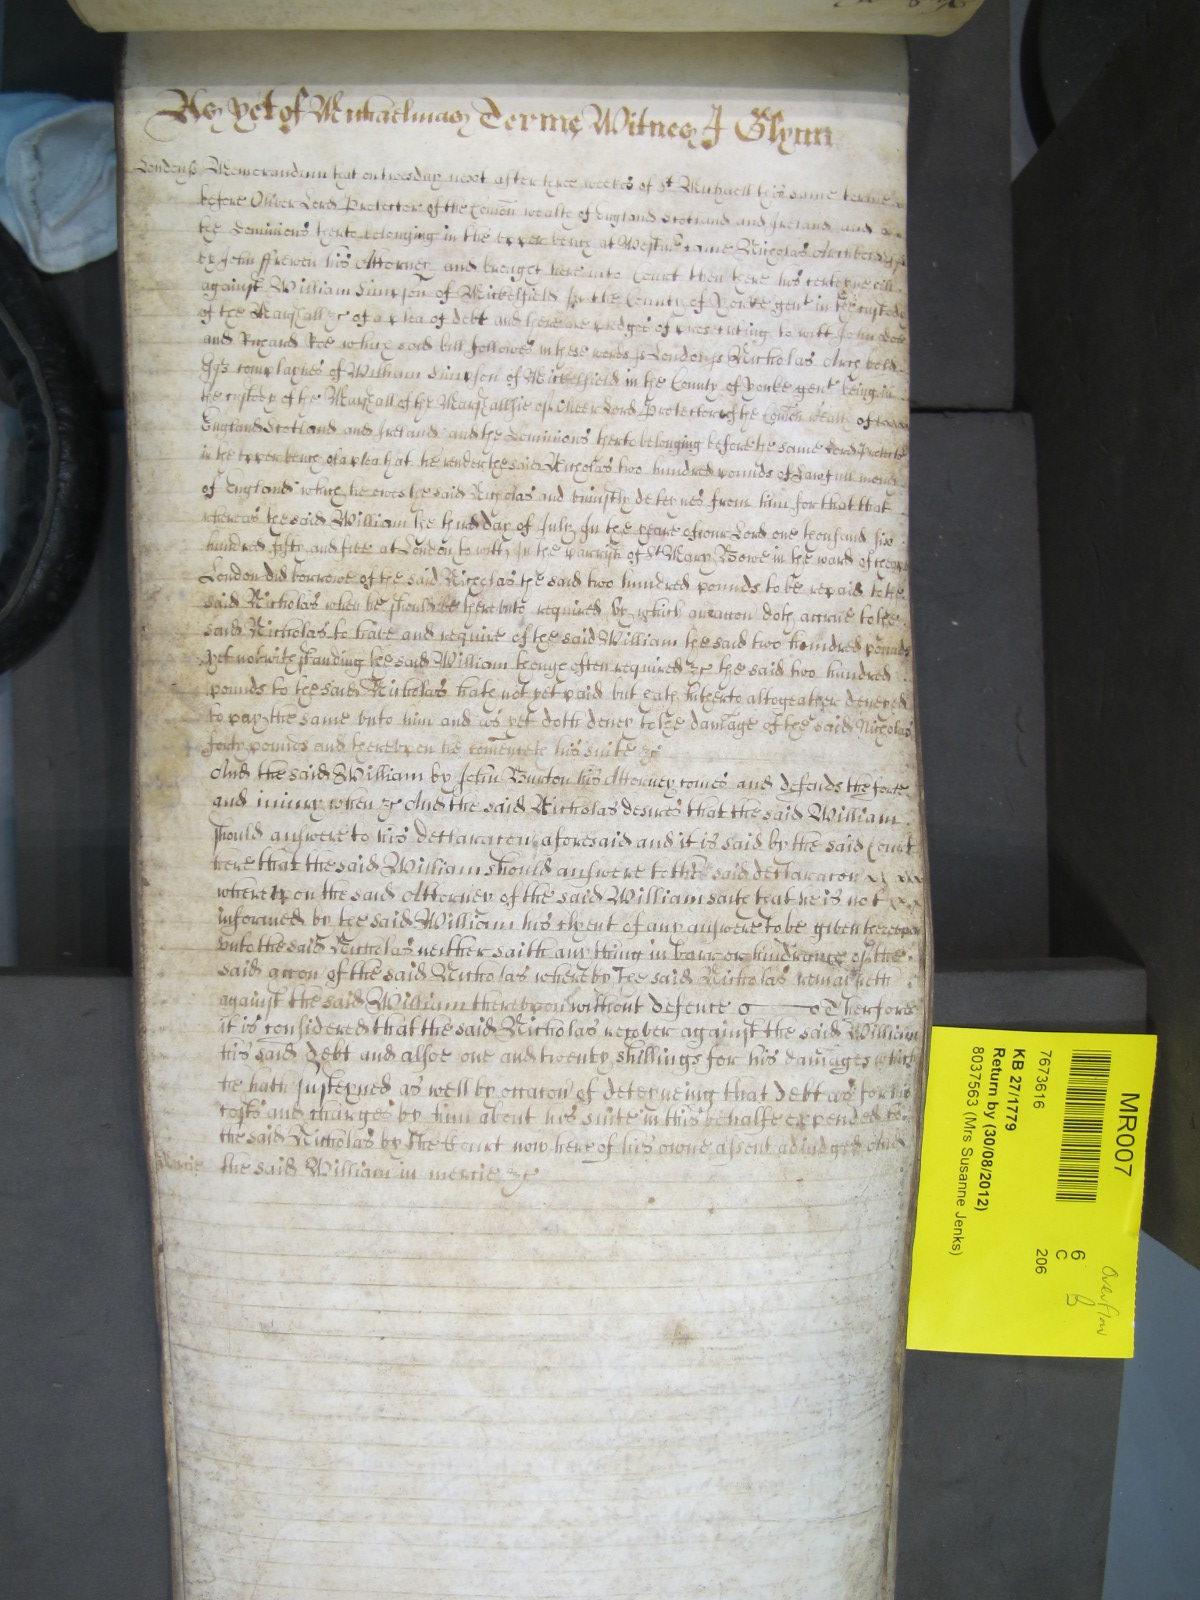 As yet of Michaelmas Terme Witnes J Glynn
London ss Memorandum that on tuesday next after three weekes of St Michaell this same terme
before Oliver Lord Protector of the Comon wealth of England Scotland and Ireland and
the Dominions thereto belonging in the upper bench at Westmr came Nicholas
by John ffrewen his Attorney and brought here into Court then there his certayne bill
against William Simpson of Mickelfield in the County of Yorke gent in the custody
of the Marshall &c of a plea of debt and there are pledges of prosecuting to witt John Doe
and Richard Roe which said bill followes in these words ss London ss Nicholas
complaynes of William Simpson of Mickelfield in the County of Yorke gent being in
the custody of the Marshall of the Marshallsie of Oliver Lord Protector of the Comon wealth of
England Scotland and Ireland and the Dominions thereto belonging before the same Lord Protector
in the upper bench of a plea that he render the said Nicholas two hundred pounds of lawfull money
of England which he owes the said Nicholas and uniustly deteynes from him for that that
whereas the said William the third day of July In the yeare of our Lord one thousand six
hundred fifty and five at London to witt In the parrish of St Mary Bowe in the ward of Cheape
London did borrowe of the said Nicholas the said two hundred pounds to be repaid to the
said Nicholas when he should be thereunto required by which accacon doth accrue to the
said Nicholas to have and require of the said William the said two hundred pounds
yet notwithstanding the said William though often required &c the said two hundred
pounds to the said Nicholas hath not yet paid but hath hitherto altogeather denyed
to pay the same unto him and as yet doth deney to the damage of the said Nicholas
forty pounds and thereupon he comenceth his suite &c
And the said William by John Burton his Attorney comes and defends the force
and iniury when &c And the said Nicholas desires that the said William
should answere to his declaracon aforesaid and it is said by the said Court
here that the said William should answere to the said declaracon
whereupon the said Attorney of the said William saith that he is not
informed by the said William his clyent of any answere to be given thereupon
unto the said Nicholas neither saith any thing in barr or hindrance of the
said accon of the said Nicholas whereby the said Nicholas remaineth
against the said William thereupon without defence Therfore
it is considered that the said Nicholas recover against the said William
his said Debt and alsoe one and twenty shillings for his damages which
he hath susteyned as well by occacon of deteyneing that debt as for his
costs and charges by him about his suite in this behalfe expended to
the said Nicholas by the Court now here of his owne assent adiudged And
mercie the said William in mercie &c
MR007
7673616
KB 27/1779
Return by (30/08/2012)
8037563 (Mrs Susanne Jenks)
6
C
206
Overflow